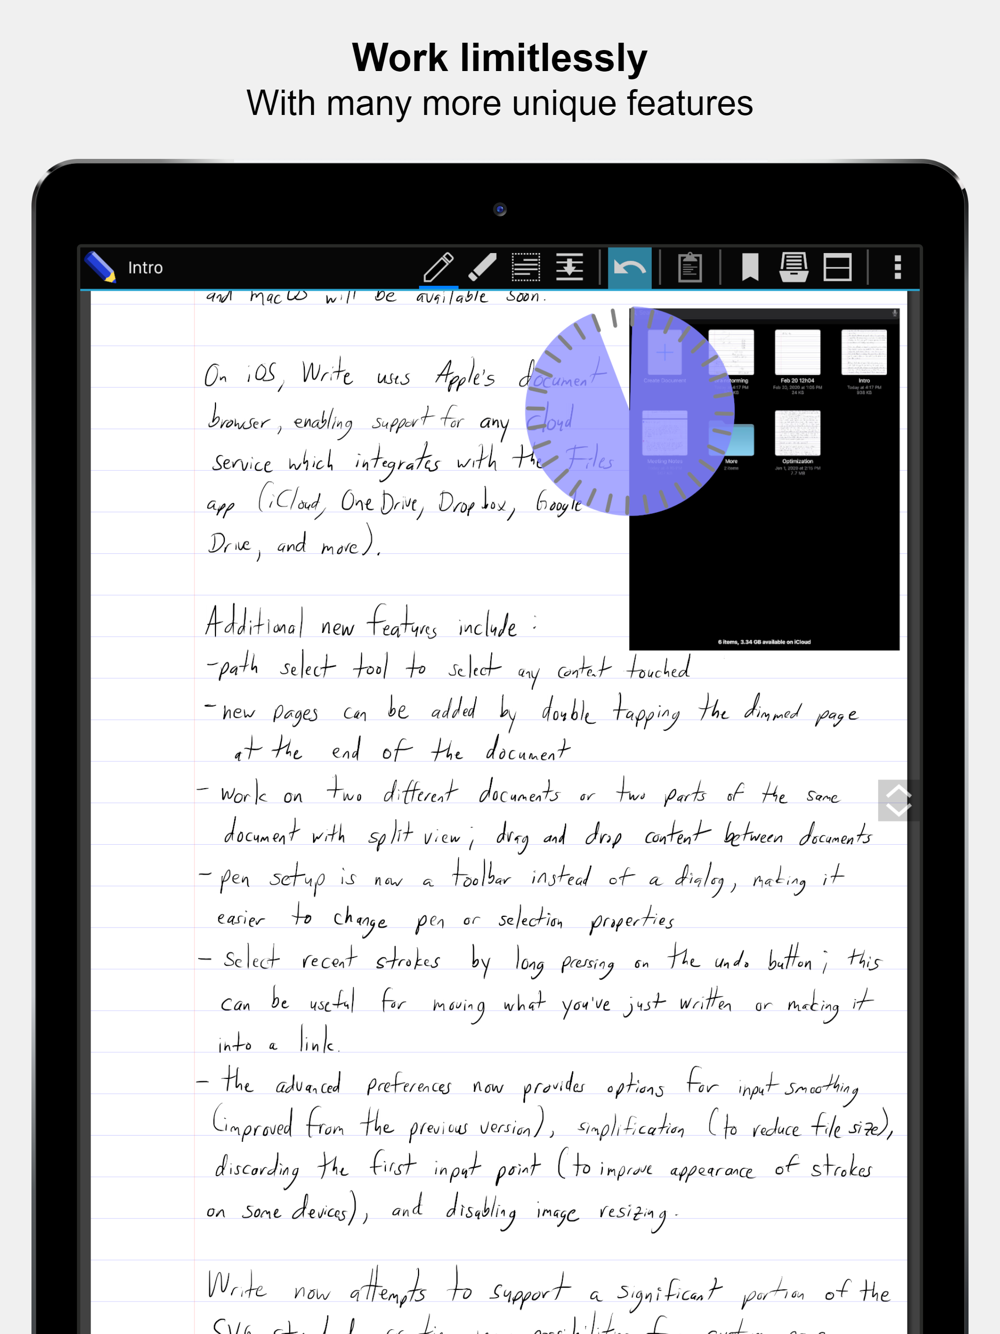 Work limitlessly
With many more unique features
Intro
and macOS will be available soon.
On iOS, Write uses Apple's document
browser, enabling support for any cloud
service which integrates with the Files
app (iCloud, One Drive, Dropbox, Google
Drive, and more).
Create Document
Feb 20 12h04
Intro
Today at 4:17 PM
Meeting Notes
More
Optimization
6 items, 3.34 GB available on iCloud
Additional new features include :
-path select tool to select any content touched
-new pages can be added by double tapping the dimmed page
at the end of the document
- work on two different documents or two parts of the same
document with split view; drag and drop content between documents
- pen setup is now a toolbar instead of a dialog, making it
easier to change pen or selection properties
- Select recent strokes by long pressing on the undo button; this
can be useful for moving what you've just written or making it
into a link.
- the advanced preferences now provides options for input smoothing
(improved from the previous version), simplification (to reduce file size),
discarding the first input point (to improve appearance of strokes
on some devices), and disabling image resizing.
Write now attempts to support a significant portion of the